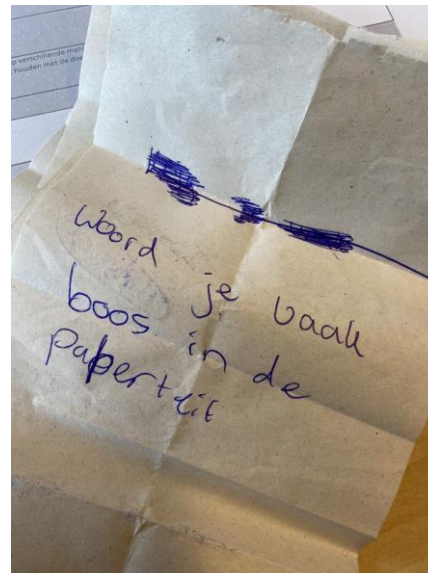 op verschillende man
houden met de doe
Woord je vaak
boos in de
paperteit